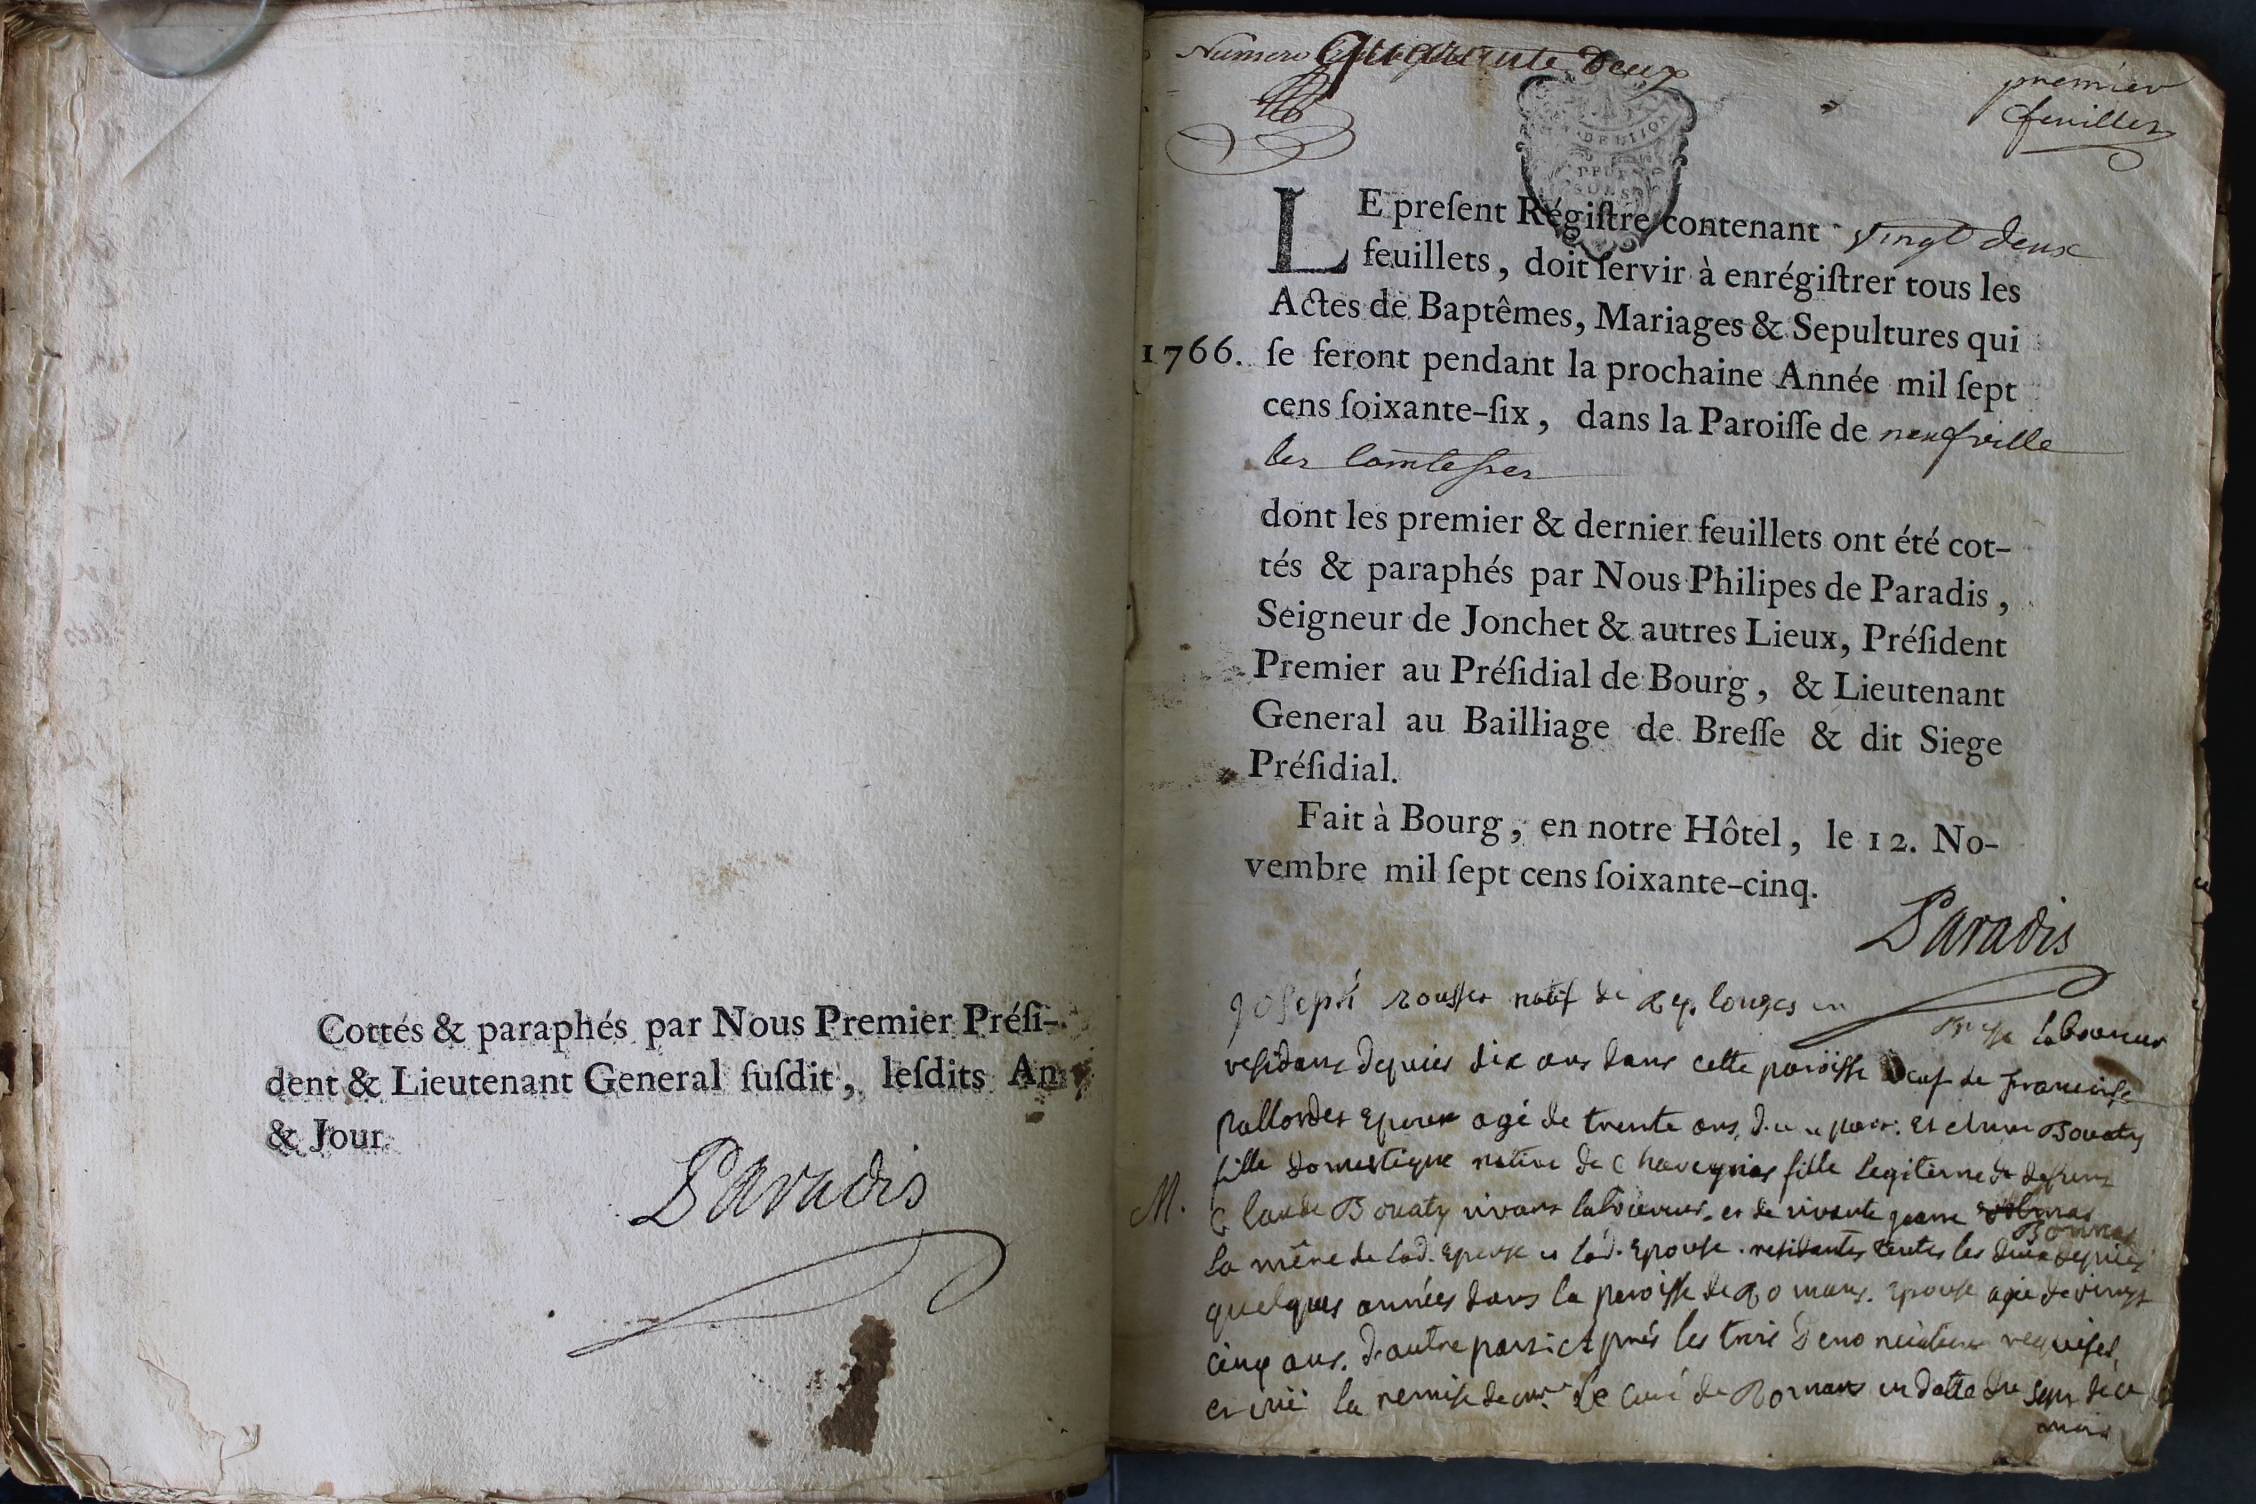 Cottés & paraphés par Nous Premier Préſi-
dent & Lieutenant General ſuſdit, leſdits An
& Jour.
Paradis
Numero quarante Deux
premier
feuillet
DE DIJON
DEUX
SOLS
LE preſent Régiſtre contenant vingt deux
feuillets, doit ſervir à enrégiſtrer tous les
Actes de Baptêmes, Mariages & Sepultures qui
1766. ſe feront pendant la prochaine Année mil ſept
cens ſoixante-ſix, dans la Paroiſſe de neufville
les comtesses
dont les premier & dernier feuillets ont été cot-
tés & paraphés par Nous Philipes de Paradis,
Seigneur de Jonchet & autres Lieux, Préſident
Premier au Préſidial de Bourg, & Lieutenant
General au Bailliage de Breſſe & dit Siege
Préſidial.
Fait à Bourg, en notre Hôtel, le 12. No-
vembre mil ſept cens ſoixante-cinq.
Paradis
joseph rousset natif de Replonges en
laboureur
residant depuis dix ans dans cette paroisse veuf de francoise
epoux agé de trente ans, d'une part. et Bouaty
fille domestique native de fille legitime de defunt
M. Claude Bouaty vivant laboureur, et de vivante jeanne
Bonnas
la mêre de lad. epouse et lad. epouse. residantes toutes les deux depuis
quelques années dans la paroisse de Romans. epouse agée de vingt
cinq ans. d'autre part: Après les trois denonciations requises,
et vüe la remise de mr. le curé de Romans en datte du sept de ce
mois